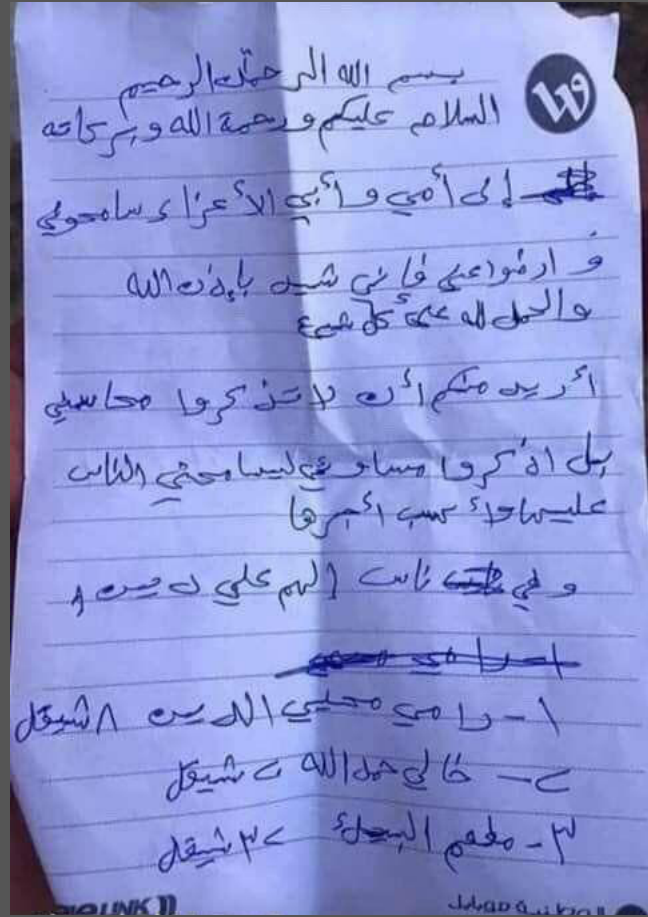 بسم الله الرحمن الرحيم
السلام عليكم ورحمة الله وبركاته
إلى أمي وأبي الأعزاء سامحوني
وارضوا عني فإني شهيد بإذن الله
والحمد لله على كل شيء
أريد منكم أن لا تذكروا محاسني
بل اذكروا مساوئي ليسامحني الناس
عليها وأكسب أجرها
وفي ناس إلهم علي دين
١- رامي محيي الدين ٨ شيقل
٢- خالي حمد الله ٢ شيقل
٣- مطعم ٢٣ شيقل
LINK
الوطنية موبايل